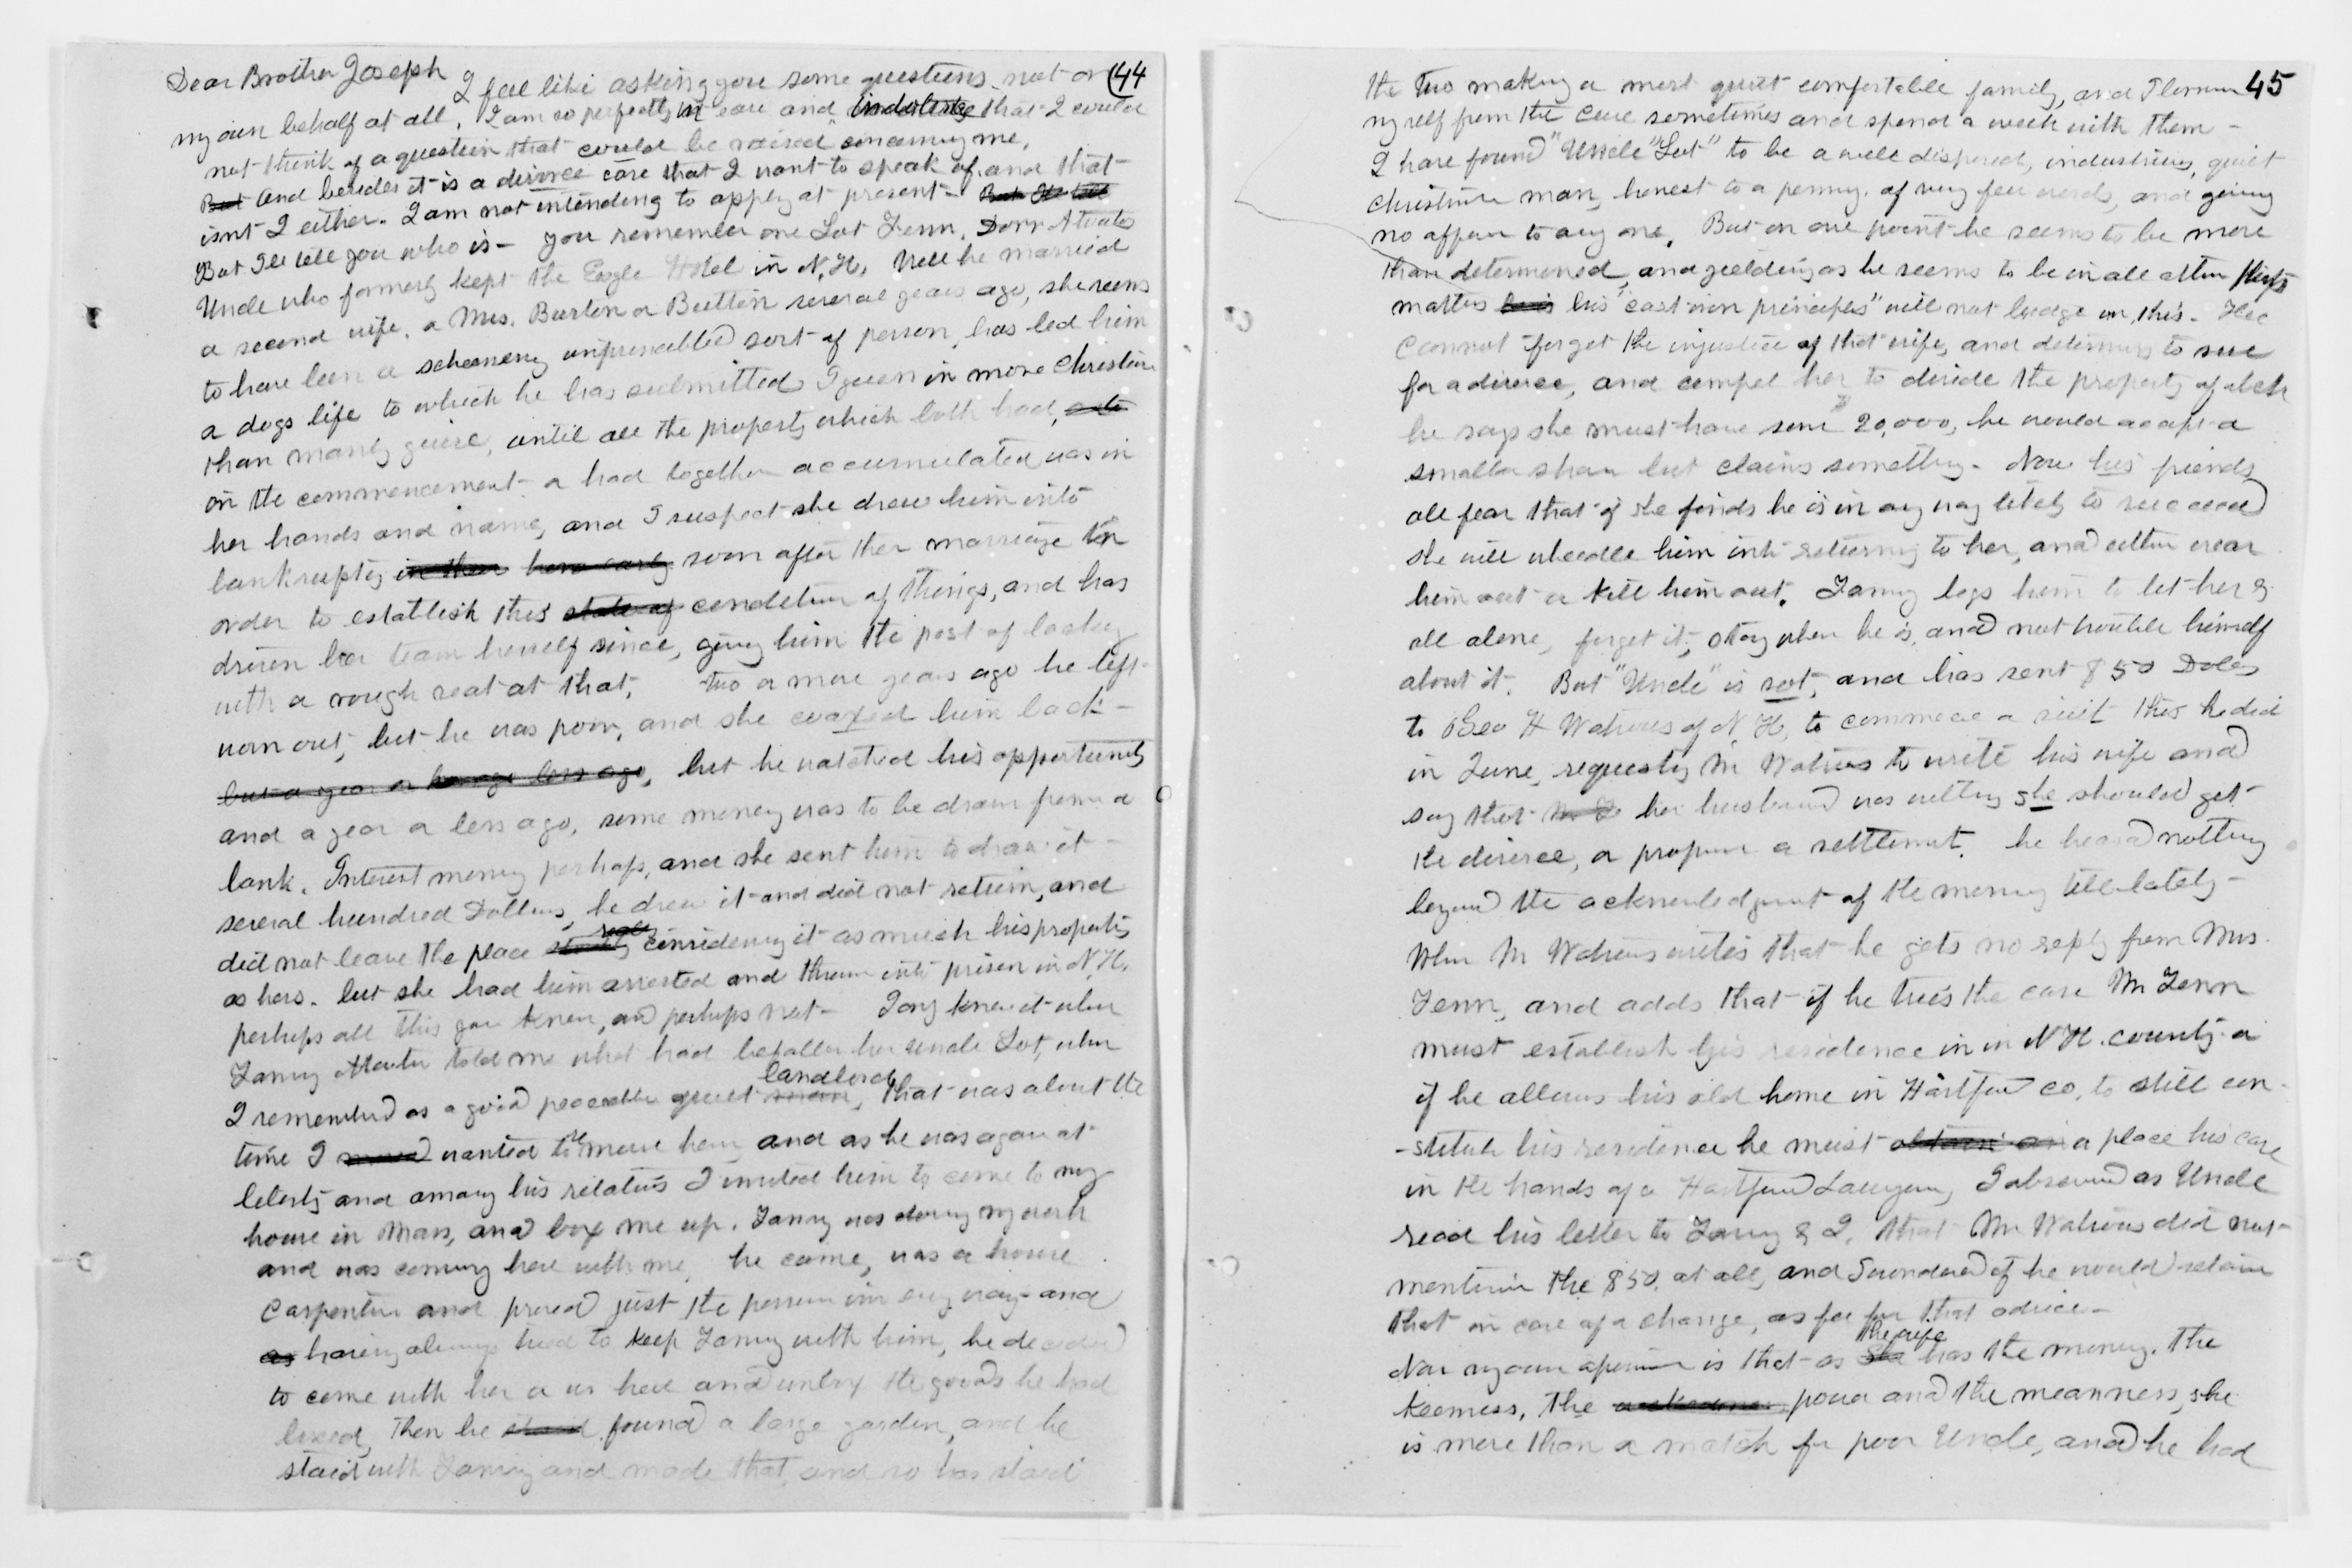 44
Dear Brother Joseph I feel like asking you some questions not on
my own behalf at all, I am so perfectly in ease and indolence that I could
not think of a question that could be raised concerning me,
But And besides it is a divorce case that I want to speak of and that
isnt I either. I am not intending to apply at present -
But Ill tell you who is - You remember one Lot Fenn,
Uncle who formerly kept the Eagle Hotel in N.H. Well he married
a second wife, a Mrs. Burton or Button several years ago, she seems
to have been a scheeming unprincipled sort of person, has led him
a dogs life to which he has submitted I guess in more christian
than manly guise, until all the property which both had,
on the commencement or had together accumulated was in
her hands and name, and I suspect she drew him into
bankruptcy soon after ther marriage in
order to establish this state of condition of things, and has
driven her team herself since, giving him the post of lackey
with a rough seat at that. Two or more years ago he left
worn out, but he was poor, and she coaxed him back -
but he watched his opportunity
and a year or less ago, some money was to be drawn from a
bank. Interest money perhaps, and she sent him to draw it -
several hundred Dollars, he drew it and did not return, and
did not leave the place considering it as much his property
as hers. but she had him arrested and thrown into prison in N.H.
perhaps all this you knew, and perhaps not - I only knew it when
Fanny Atwater told me what had befallen her uncle Lot, whom
I remembered as a good peaceable quiet landlord, that was about the
time I wanted to remove here and as he was again at
liberty and among his relatives I invited him to come to my
house in Mass, and box me up. Fanny was doing my work
and was coming here with me, he came, was a house
Carpenter and proved just the person in every way and
as having always tried to keep Fanny with him, he decided
to come with her or us here and unbox the goods he had
boxed, then he found a large garden, and he
staid with Fanny and made that, and so has staid
45
the two making a most quiet comfortable family, and I
myself from the Cure sometimes and spend a week with them -
I have found "Uncle "Lot" to be a well disposed, industrious, quiet
christian man, honest to a penny, of very few words, and giving
no offence to any one. But on one point he seems to be more
than determined, and yielding as he seems to be in all other
matters his "cast iron principles" will not budge on this. Hee
cannot forget the injustice of that wife, and determins to sue
for a divorce, and compel her to divide the property of which
he says she must have some $20,000, he would accept a
smaller share but claims something. Now his friends
all fear that if she finds he is in any way likely to succeed
she will wheedle him into returning to her, and either wear
him out or kill him out. Fanny begs him to let her &
all alone, forget it, stay where he is, and not trouble himself
about it. But "Uncle" is set, and has sent $50 Dolls
to Geo H Watrous of N.H, to commence a suit this he did
in June, requesting Mr Watrous to write his wife and
say that her husband was willing she should get
the divorce, or propose a settlement. he heard nothing
beyond the acknowledgment of the money till lately -
When Mr Watrous writes that he gets no reply from Mrs.
Fenn, and adds that if he tries the case Mr Fenn
must establish his residence in in N.H. county or
if he allows his old home in Hartford co, to still con
-stitute his residence he must a place his case
in the hands of a Hartford Lawyer, I observed as Uncle
read his letter to Fanny & I, that Mr Watrous did not
mention the $50. at all, and I wondered if he would retain
that in case of a change, as fee for that advice -
Now my own opinion is that as the wife has the money, the
keeness, the power and the meanness, she
is more than a match for poor Uncle, and he had